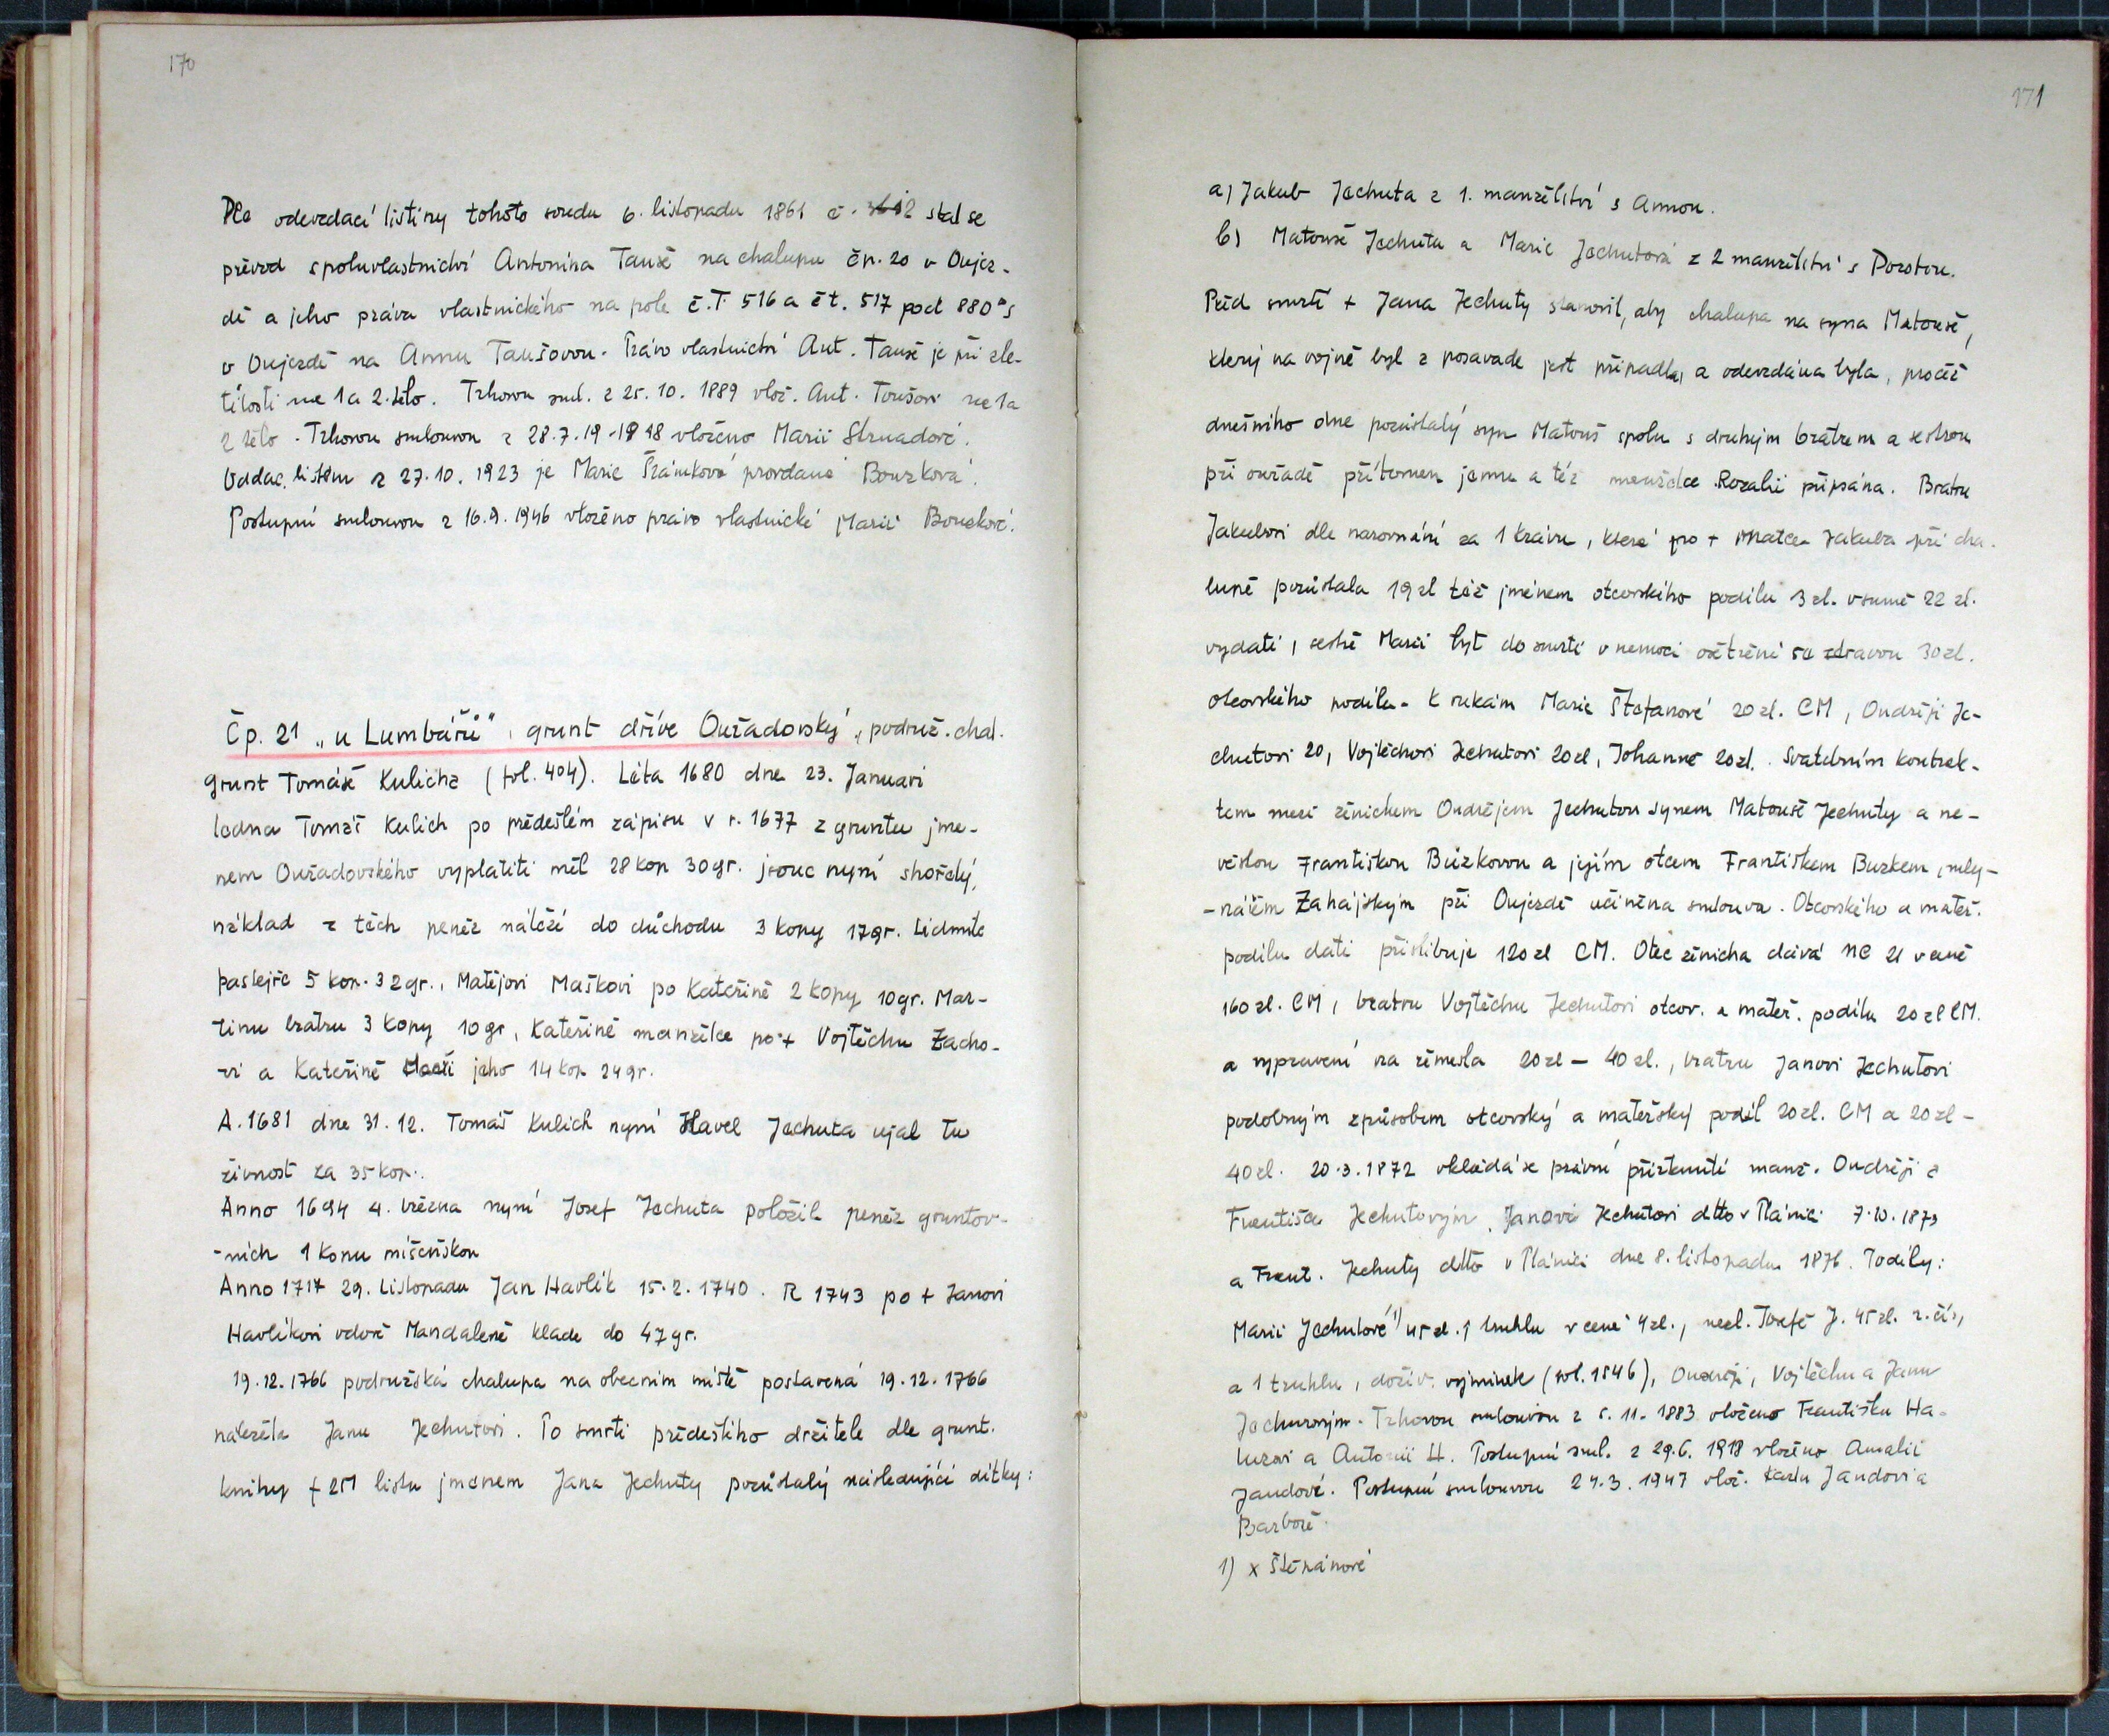 170
Dle odevzdací listiny tohoto soudu 6. listopadu 1861 č. stal se
převod spoluvlastnictví Antonína Tauše na chalupu čp. 20 v Oujez-
dě a jeho práva vlastnického na pole č.T. 516 a čt. 517 pod 880°s
v Oujezdě na Annu Taušovou. Právo vlastnictví Ant. Tauše je při zle-
tilosti na 1a 2. tělo. Trhovou sml. z 25. 10. 1889 vlož. Ant. Toušovi na 1a
2 tělo. Trhovou smlouvou z 28.7.19 - 1918 vloženo Marii Strnadové.
Oddac. listem z 27.10.1923 je Marie Šrámková provdaná Bouzková.
Postupní smlouvou z 16.9.1946 vloženo právo vlastnické Marii Bouzkové.
Čp. 21 „u Lumbářů", grunt dříve Ouřadovský, podruž. chal.
Grunt Tomáše Kulicha (fol. 404). Léta 1680 dne 23. Januari
ledna Tomáš Kulich po předešlém zápisu v r. 1677 z gruntu jme-
nem Ouřadovského vyplatiti měl 28 kop 30 gr. jsouc nyní shořelý,
náklad z těch peněz náleží do důchodu 3 kopy 17 gr. Lidmile
pastejře 5 kop. 32 gr., Matějovi Maškovi po Kateřině 2 kopy 10 gr. Mar-
tinu bratru 3 kopy 10 gr, Kateřině manželce po + Vojtěchu Zacho-
vi a Kateřině jeho 14 kop 24 gr.
A. 1681 dne 31. 12. Tomáš Kulich nyní Havel Jechuta ujal tu
živnost za 35 kop.
Anno 1694 4. března nyní Josef Jechuta položil peněz gruntov-
-ních 1 kopu míšenskou
Anno 1717 29. Listopadu Jan Havlík 15.2.1740. R 1743 po + Janovi
Havlíkovi vdově Mandaleně klade do 47 gr.
19.12.1766 podružská chalupa na obecním místě postavená 19.12.1766
náležela Janu Jechutovi. Po smrti předešlého držitele dle grunt.
knihy f 251 listu jmenem Jana Jechuty pozůstalý následující dítky:
171
a) Jakub Jechuta z 1. manželství s Annou.
b) Matouš Jechuta a Marie Jechutová z 2 manželství s Dorotou.
Před smrtí + Jana Jechuty stanovil, aby chalupa na syna Matouše,
který na vojně byl a posavade jest připadla, a odevzdána byla, pročež
dnešního dne pozůstalý syn Matouš spolu s druhým bratrem a sestrou
při ouřadě přítomen jemu a též manželce Rozalii připsána. Bratru
Jakubovi dle narovnání za 1 krávu, která po + matce Jakuba při cha-
lupě pozůstala 19 zl též jménem otcovského podílu 3 zl. v sumě 22 zl.
vydati, sestře Marii byt do smrti v nemoci ošetření se zdravou 30 zl.
otcovského podílu. K rukám Marie Štefanové 20 zl. CM, Ondřeji Je-
chutovi 20, Vojtěchovi Jechutovi 20 zl, Johanně 20 zl. Svatebním kontrak-
tem mezi ženichem Ondřejem Jechutou synem Matouše Jechuty a ne-
věstou Františkou Bůzkovou a jejím otcem Františkem Buzkem, mly-
-nářem Zahájským při Oujezdě učiněna smlouva. Otcovského a mateř.
podílu dáti přislibuje 120 zl CM. Otec ženicha dává NC 21 v ceně
160 zl. CM, bratru Vojtěchu Jechutovi otcov. a mateř. podílu 20 zl CM.
a vypravení na řemesla 20 zl – 40 zl., bratru Janovi Jechutovi
podobným způsobem otcovský a mateřský podíl 20 zl. CM a 20 zl –
40 zl. 20.3.1872 vkládá se právní přiřknutí manž. Ondřeji a
Františce Jechutovým, Janovi Jechutovi dtto v Plánici 7.10.1873
a Frant. Jechuty dtto v Plánici dne 8. listopadu 1876. Podíly:
Marii Jechutové 1) 45 zl. 1 truhlu v ceně 4 zl., nezl. Josefě J. 45 zl. r. čís,
a 1 truhlu, doživ. výminek (fol. 1546), Ondřeji, Vojtěchu a Janu
Jechutovým. Trhovou smlouvou z 5. 11. 1883 vloženo Františku Ha-
luzovi a Antonii H. Postupní sml. z 29.6.1918 vloženo Amalii
Jandové. Postupní smlouvou 24.3.1947 vlož. Karlu Jandovi a
Barboře.
1) x Štěpánové